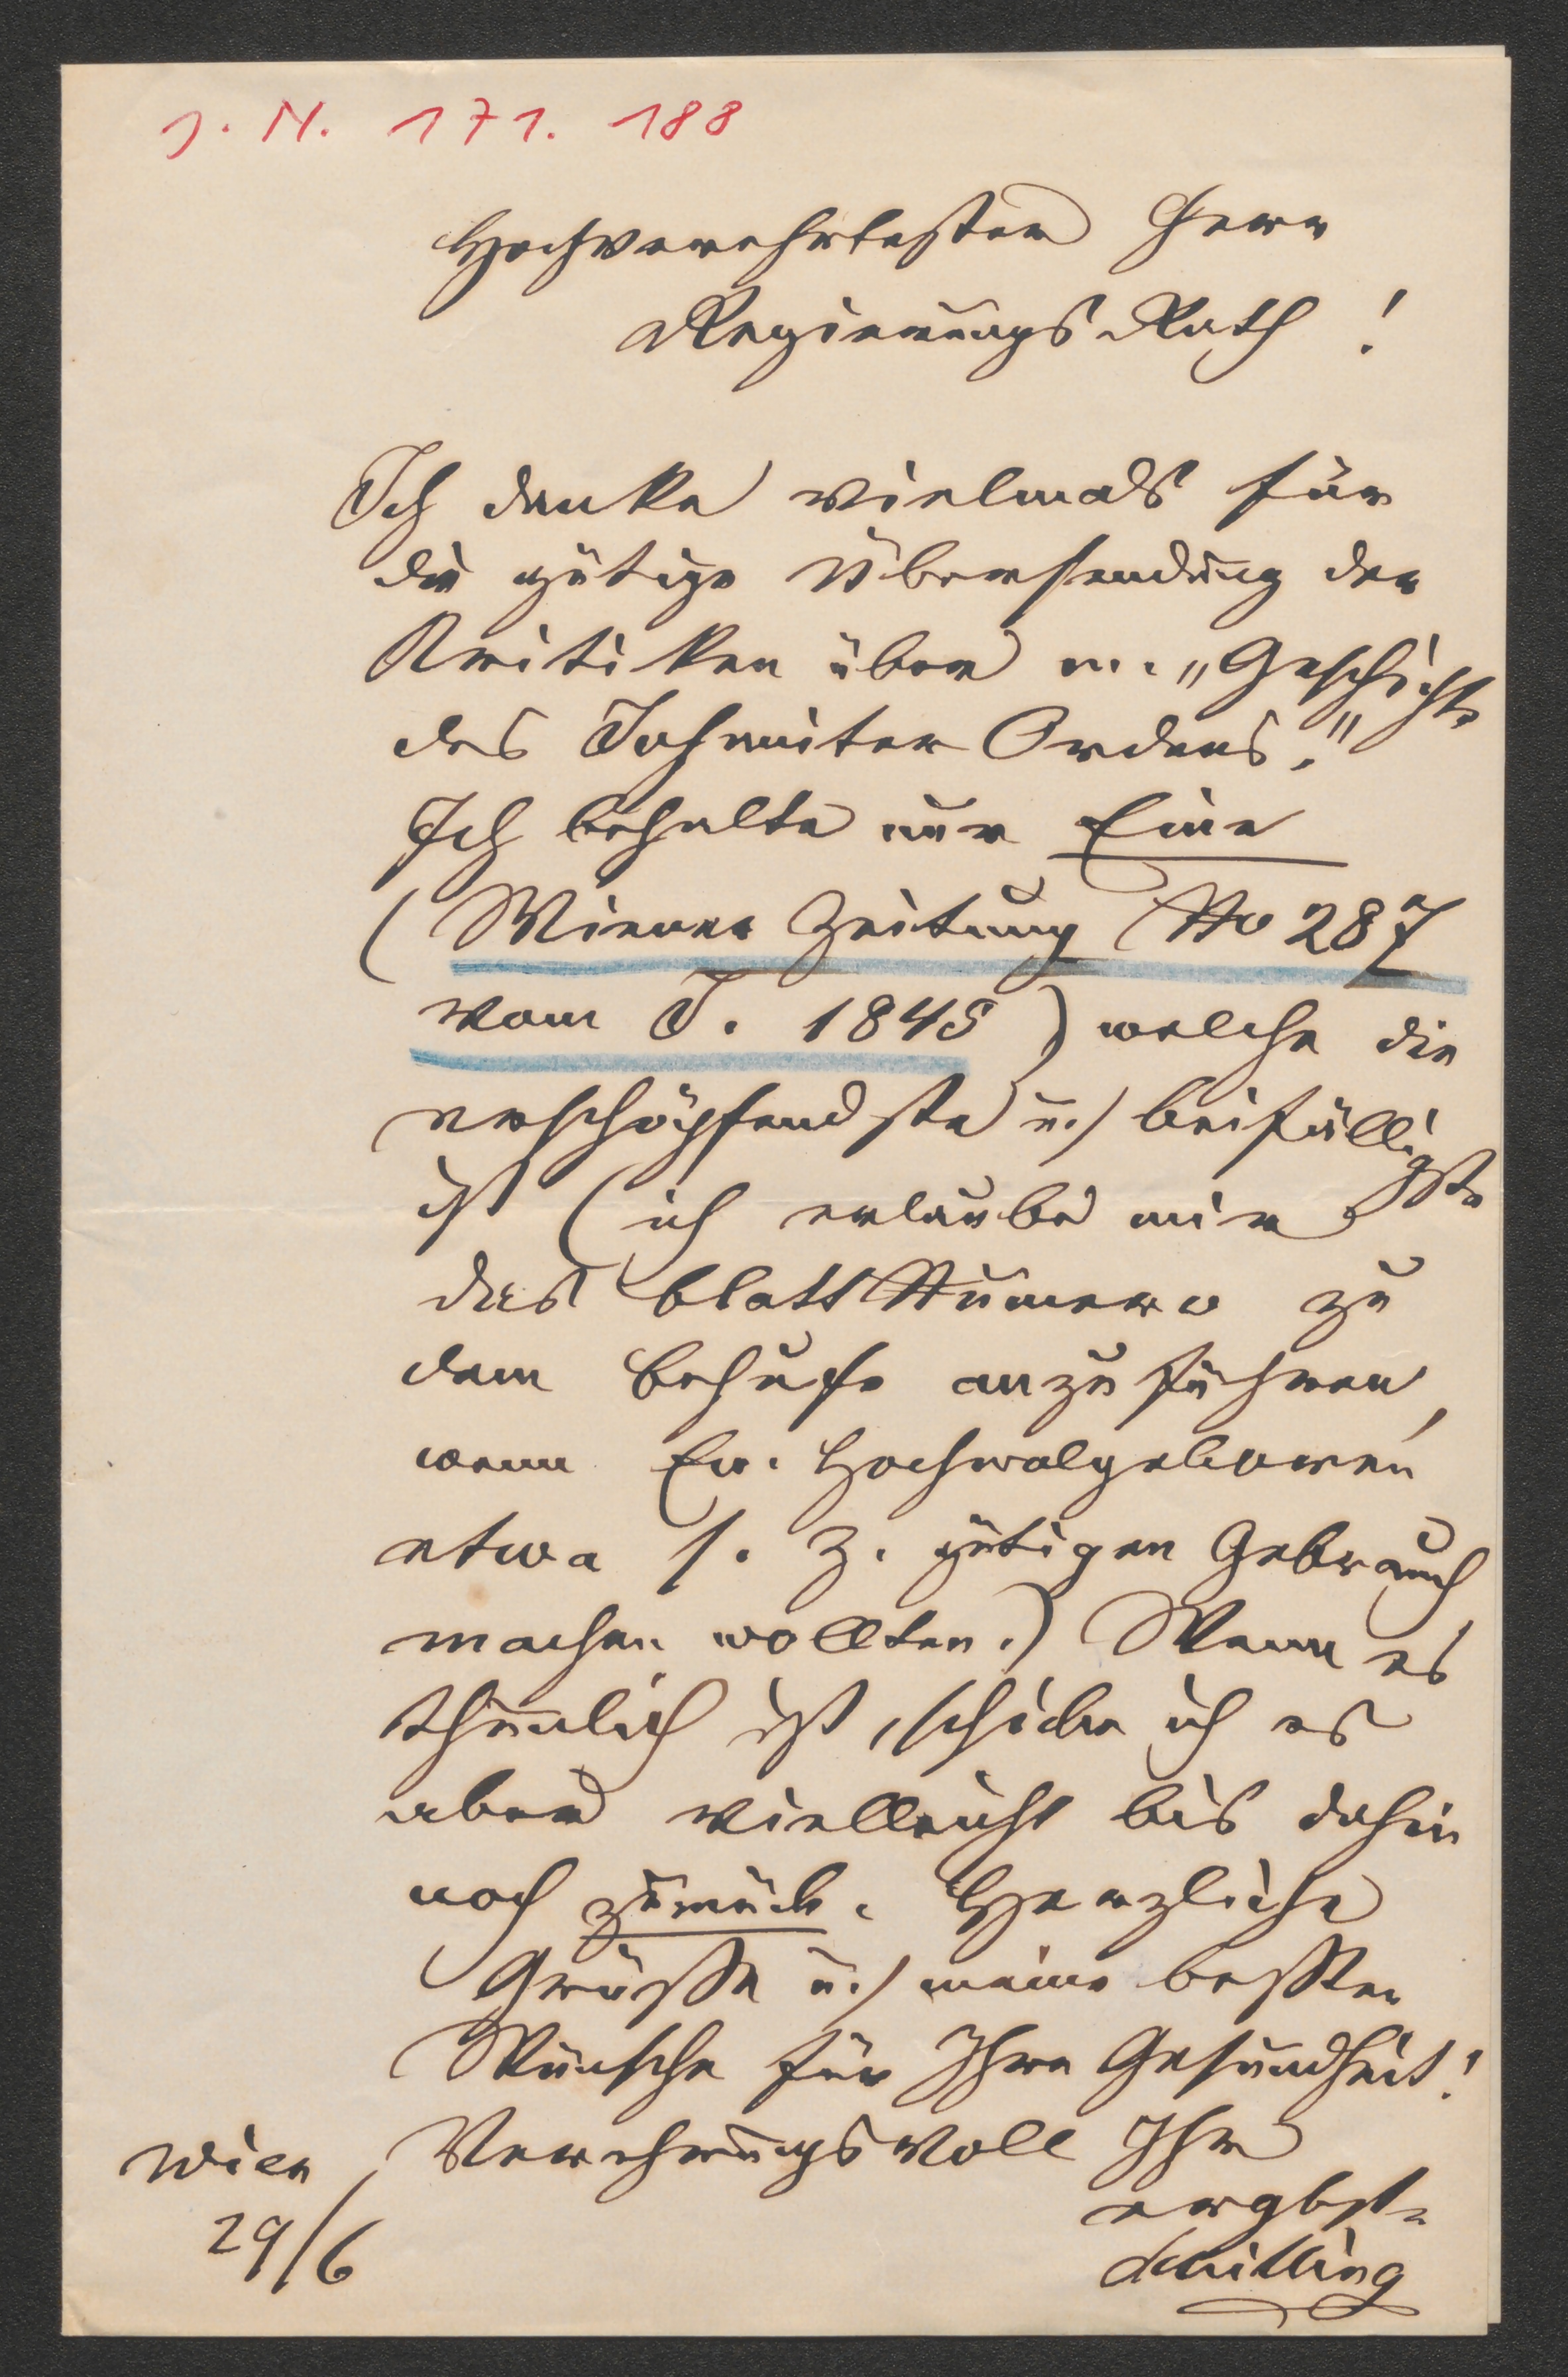 J. N. 171.188
Hochverehrtester Herr
Regierungs Rath!
Ich danke vielmals für
die gütige Übersendung der
Kritiken über m. „Geschichte
des Johaniter Ordens."
Ich behalte nur Eine
(Wiener Zeitung No 287
vom J. 1845) welche die
erschöpfendste u./ beifälligste
ist (ich erlaube mir
das Blatt Numero zu
dem Behufe anzuführen,
wenn Ew. Hochwolgeboren
etwa s. Z. gütigen Gebrauch
machen wollten.) Wenn es
thunlich ist, schicke ich es
aber vielleicht bis dahin
noch zurück. Herzliche
Grüße u./ meine besten
Wünsche für Ihre Gesundheit!
Verehrungsvoll Ihr
ergbste
Schilling
Wien
29/6